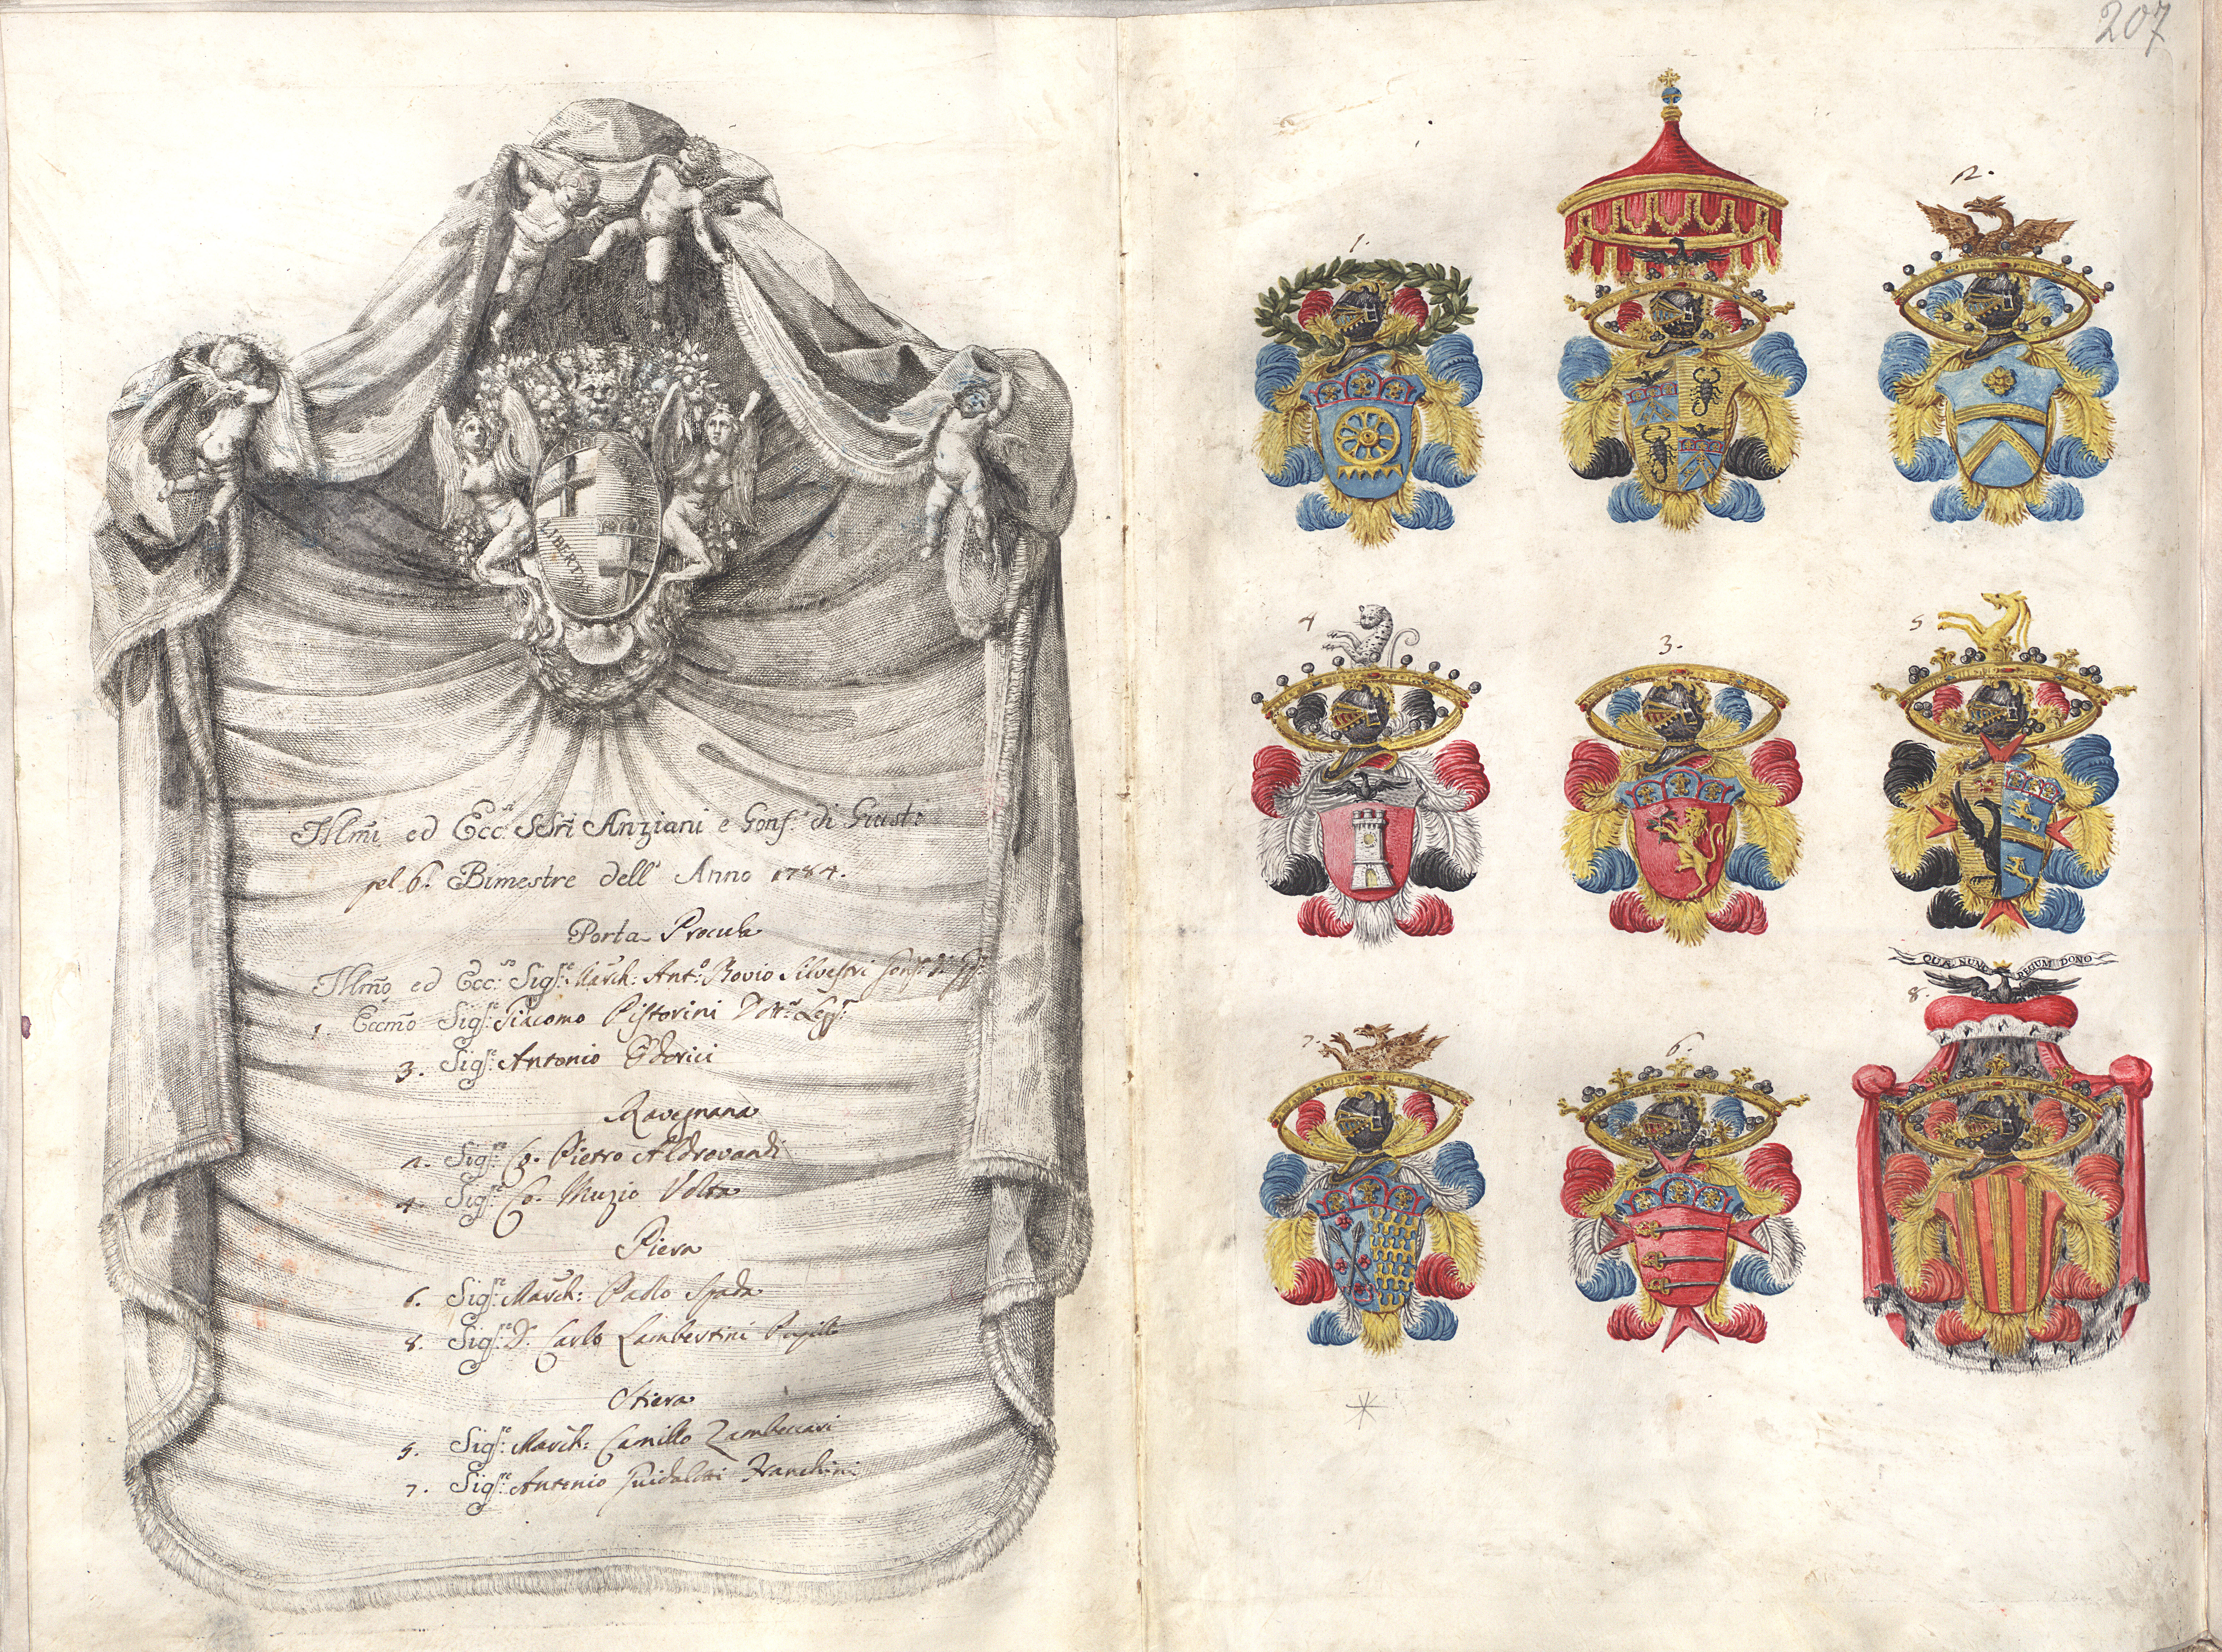 207
LIBERTAS
Illmi ed Ecc.si SSri Anziani e Gonf.e di Giust.
pel 6.o Bimestre dell' Anno 1784.
Porta Procula
Illmo ed Ecc.so Sigr.e March: Ant.o Bovio Silvestri Gonf.e di
1. Eccmo Sigr.e Giacomo Pistorini Dott.r Legg.
3. Sigr.e Antonio Odorici
Ravegnana
2. Sigr.e Co. Pietro Aldrovandi
4. Sigr.e Co. Muzio Volta
Piera
6. Sigr.e March: Paolo Spada
8. Sigr.e D. Carlo Lambertini
Stiera
5. Sigr.e March: Camillo Zambeccari
7. Sigr.e Antonio Guidalotti Franchini
1.
2.
4
3.
5
QUÆ NUNC REGUM DONO
8.
7.
6.